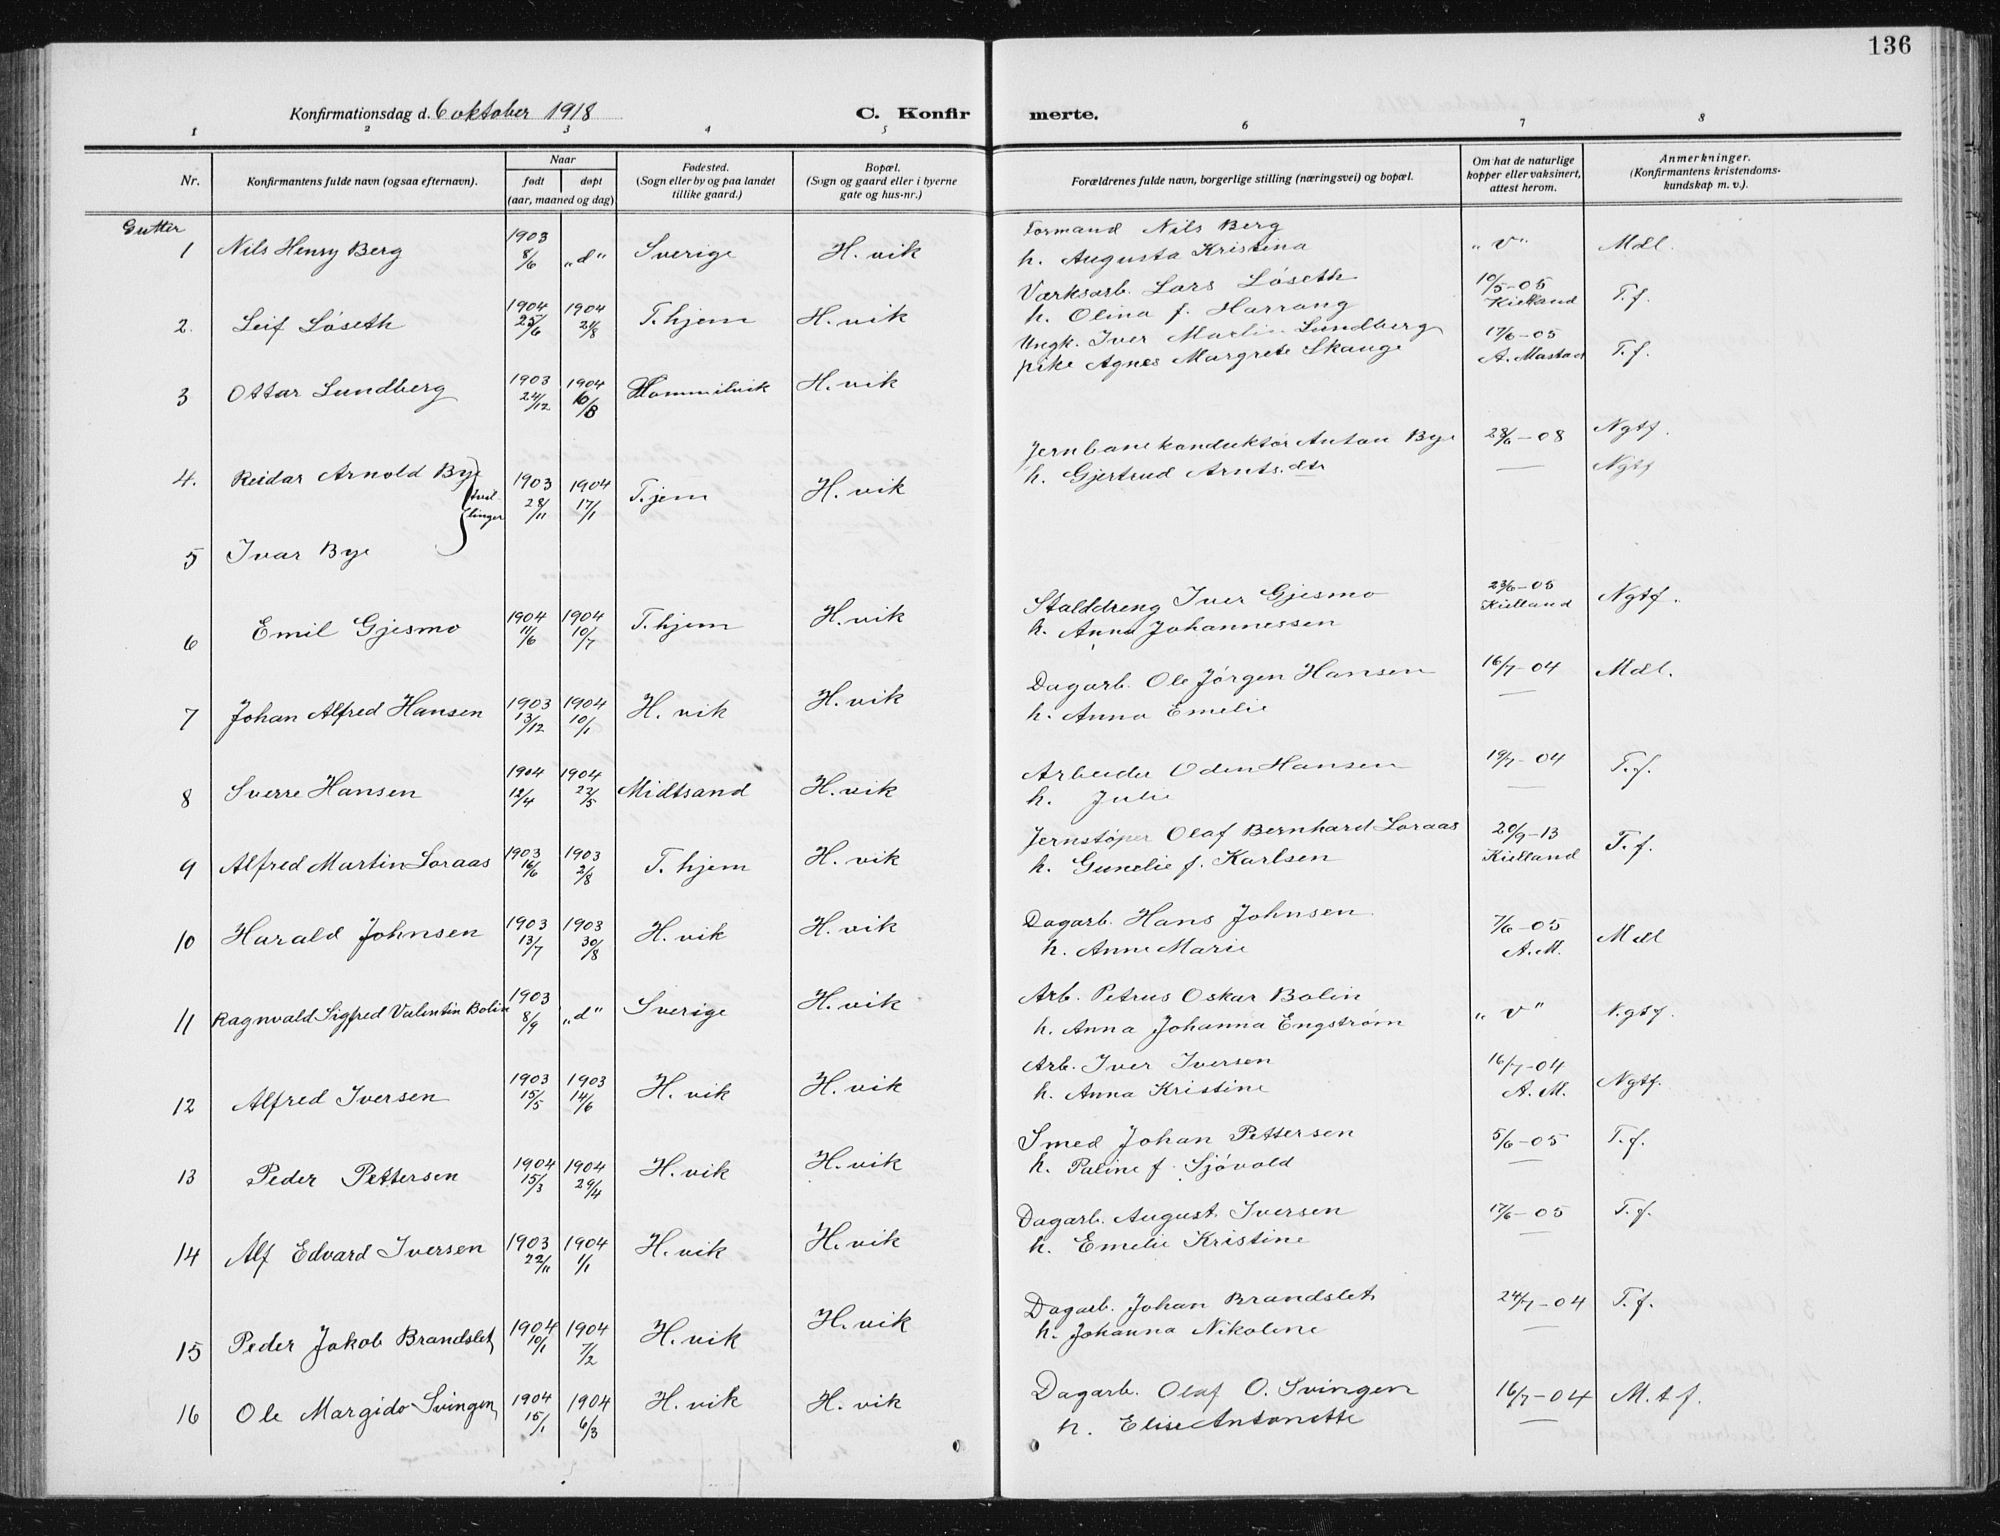 136
Konfirmationsdag d. 6 oktober 1918
C. Konfirmerte.
1 2 3 4 5 6 7 8
Nr.
Konfirmantens fulde navn (ogsaa efternavn).
Naar
født
døpt
(aar, maaned og dag)
Fødested.
(Sogn eller by og paa landet
tillike gaard.)
Bopæl.
(Sogn og gaard eller i byerne
gate og hus-nr.)
Forældrenes fulde navn, borgerlige stilling (næringsvei) og bopæl.
Om hat de naturlige
kopper eller vaksinert,
attest herom.
Anmerkninger.
(Konfirmantens kristendoms-
kundskap m. v.).
Gutter
1 Nils Henry Berg 1903 8/6 „d“ Sverige H. vik Formand Nils Berg
h. Augusta Kristina „v“ Mdl.
2. Leif Løseth 1904 25/6 1904 21/8 T.hjem H. vik Værksarb. Lars Løseth
h. Olina f. Harrang 10/5-05 Kielland T.f.
3 Ottar Lundberg 1903 24/12 1904 16/8 Hommelvik H. vik Ungk. Iver Martin Lundberg
pike Agnes Margrete Skauge 17/6-05 A. Mastad T.f.
4. Reidar Arnold Bye tvil-
linger 1903 28/11 1904 17/1 T.jem H. vik Jernbanekonduktør Anton Bye
h. Gjertrud Arntsdtr 28/6-08 Ngtf.
5 Ivar Bye — Ngtf
6 Emil Gjesmo 1904 11/6 1904 10/7 T.hjem H. vik Stalddreng Iver Gjesmo
h. Anna Johannessen 23/6-05 Kielland Ngtf.
7 Johan Alfred Hansen 1903 13/12 1904 10/1 H. vik H. vik Dagarb. Ole Jørgen Hansen
h. Anna Emelie 16/7-04 — Mdl.
8 Sverre Hansen 1904 12/4 1904 22/5 Midtsand H. vik Arbeider Oden Hansen
h. Julie 19/7-04 — T.f.
9 Alfred Martin Loraas 1903 16/6 1903 2/8 T. hjem H. vik Jernstøper Olaf Bernhard Loraas
h. Gunelie f. Karlsen 20/9-13 Kielland T.f.
10 Harald Johnsen 1903 13/7 1903 30/8 H. vik H. vik Dagarb. Hans Johnsen
h. Anne Marie 7/6-05 A.M. Mdl
11 Ragnvald Sigfred Valentin Bolin 1903 8/9 „d“ Sverige H. vik Arb. Petrus Oskar Bolin
h. Anna Johanna Engstrøm „v“ Ngtf.
12 Alfred Iversen 1903 15/5 1903 14/6 H. vik H. vik Arb. Iver Iversen
h. Anna Kristine 16/7-04 A.M. Ngtf.
13 Peder Pettersen 1904 15/3 1904 24/4 H. vik H. vik Smed Johan Pettersen
h. Paline f. Sjøvold 5/6-05 — T.f.
14 Alf Edvard Iversen 1903 22/11 1904 1/1 H. vik H. vik Dagarb. August Iversen
h. Emelie Kristine 17/6-05 — T.f.
15 Peder Jakob Brandslet 1904 10/1 1904 7/2 H. vik H. vik Dagarb. Johan Brandslet
h. Johanna Nikoline 24/7-04 — T.f.
16 Ole Margido Svingen 1904 15/1 1904 6/3 H. vik H. vik Dagarb. Olaf O. Svingen
h. Elise Antonette 16/7-04 — M.t.f.